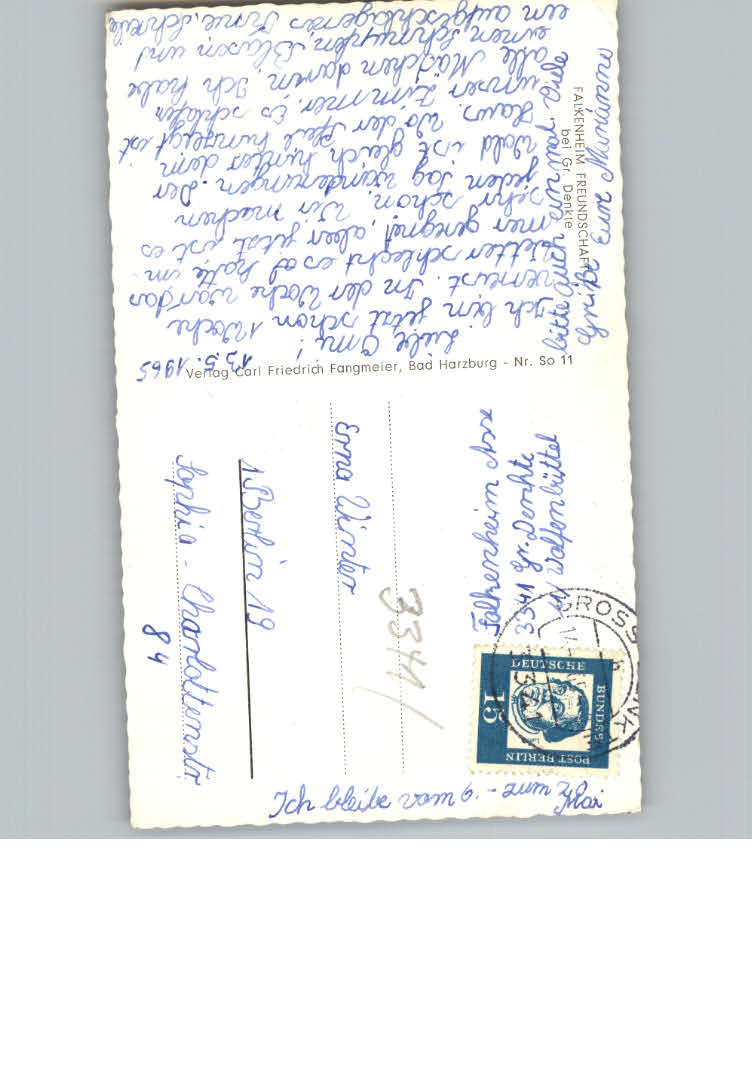 FALKENHEIM FREUNDSCHAFT
bei Gr. Denkte
13.5.1965
Liebe Omi!
Ich bin jetzt schon 1 Woche
verreist. In der Woche war das
Wetter schlecht es hatte im-
mer geregnet, aber jetzt ist es
sehr schön. Wir machen
jeden Tag Wanderungen. Der
Wald ist gleich hinter dem
Haus. Wo der Pfeil hinzeigt ist
unser Zimmer. Es schlafen
alle Mädchen darin. Ich habe
einen Schnupfen, Blasen und
ein aufgeschlagenes Knie. Schreibe
bitte auch mal.
Grüße
Verlag Carl Friedrich Fangmeier, Bad Harzburg - Nr. So 11
Falkenheim Asse
3341 Gr. Denkte
ü/ Wolfenbüttel
3341/
Erna Winter
1 Berlin 19
Sophie-Charlottenstr
84
Ich bleibe vom 6. - zum
Mai
DEUTSCHE
BUNDES
POST BERLIN
15
GROSS